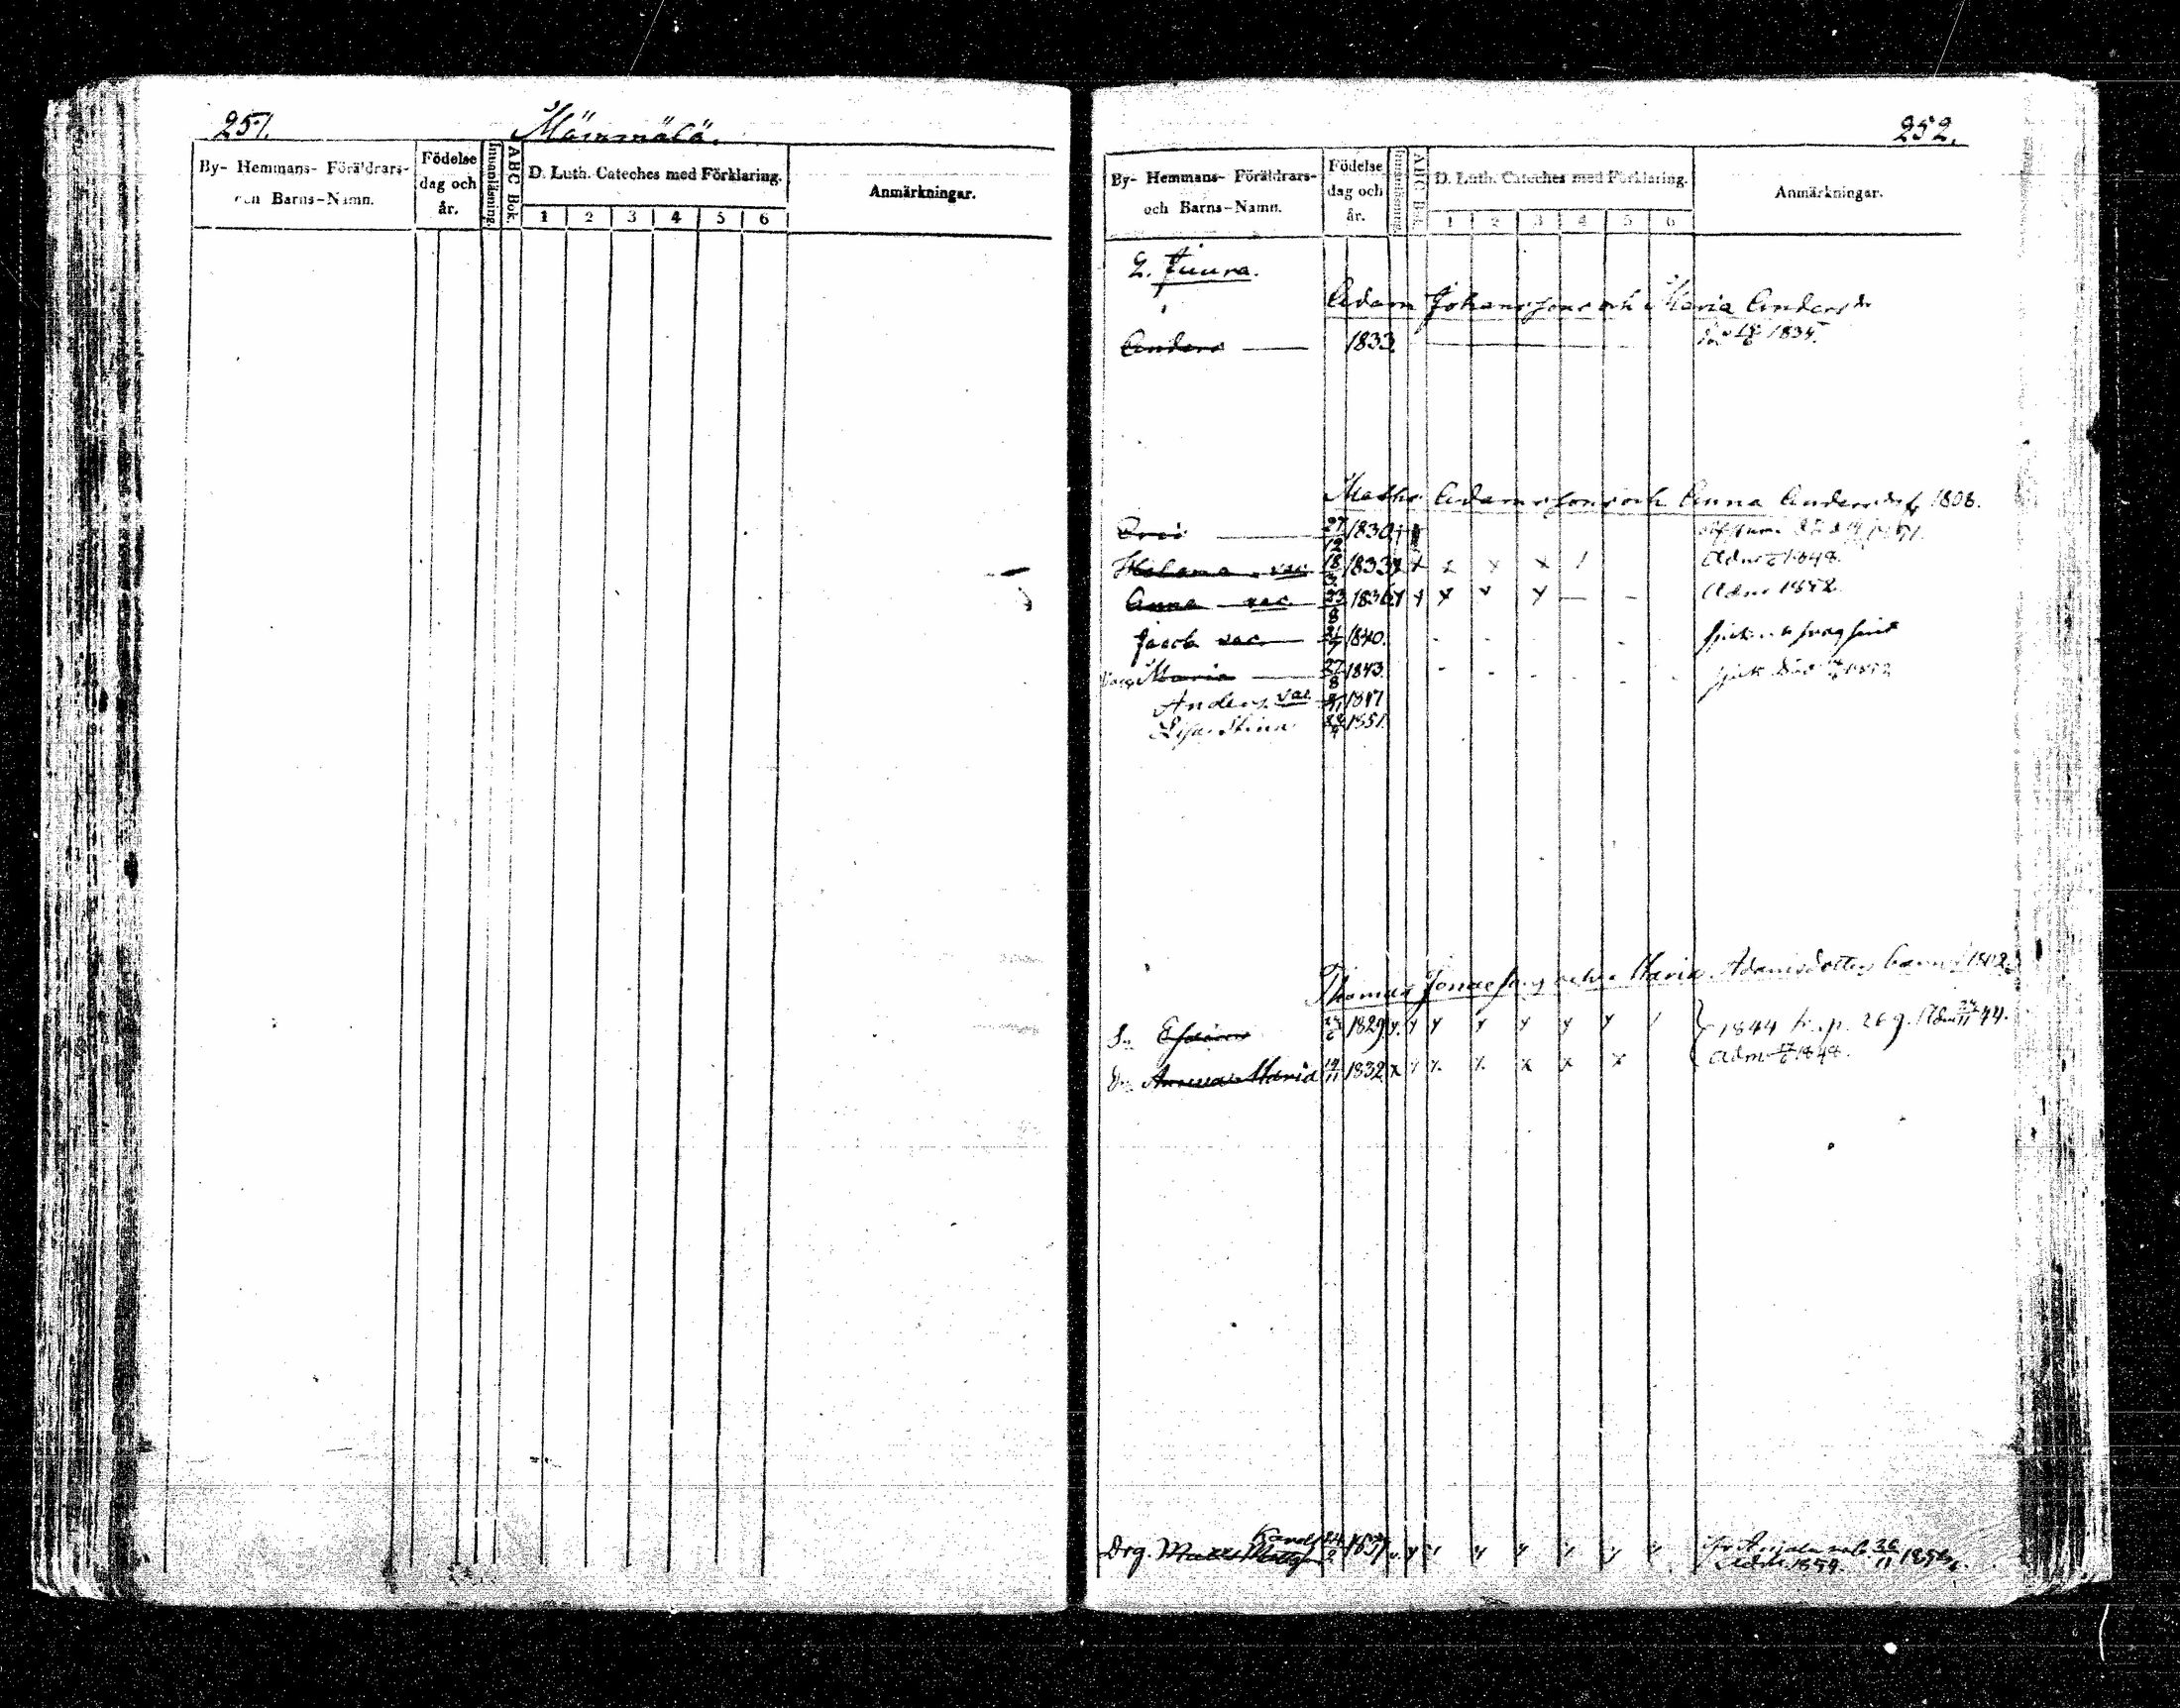 251.
Mämmälä.
By- Hemmans- Föräldrars- och Barns-Namn.
Födelse dag och år.
Innanläsning.
ABC Bok.
D. Luth. Cateches med Förklaring.
1 2 3 4 5 6
Anmärkningar.
252.
By- Hemmans- Föräldrars- och Barns-Namn.
Födelse dag och år.
Innanläsning.
ABC Bok.
D. Luth. Cateches med Förklaring.
1 2 3 4 5 6
Anmärkningar.
2. Juura.
Adam Johanssons och Maria Andersdr
Anders 1833 1835.
Matts Adamssons och Anna Andersdr f. 1808.
Eric 27/12 1830
18/3 1833 x x x x x / Adm 1848.
Anna vac. 23/8 1836 y y y y y — - Adm 1852.
Jacob vac. 1840. - - - -
Maria 27/8 1843. - - - - - - 1852
Anders vac. 1847
Lisa Stina 1851.
Thomas Jonaessons och Maria Adamsdotters barn 1802
Sn. 1829 y. y y y y y y / 1844 fr. p. 269. Adm 44.
Dr. Anna Maria 19/11 1832 x y y. y. x x x Adm 1848.
Drg. 1837 y y y y y y y 11 1856.
Adm. 1859.